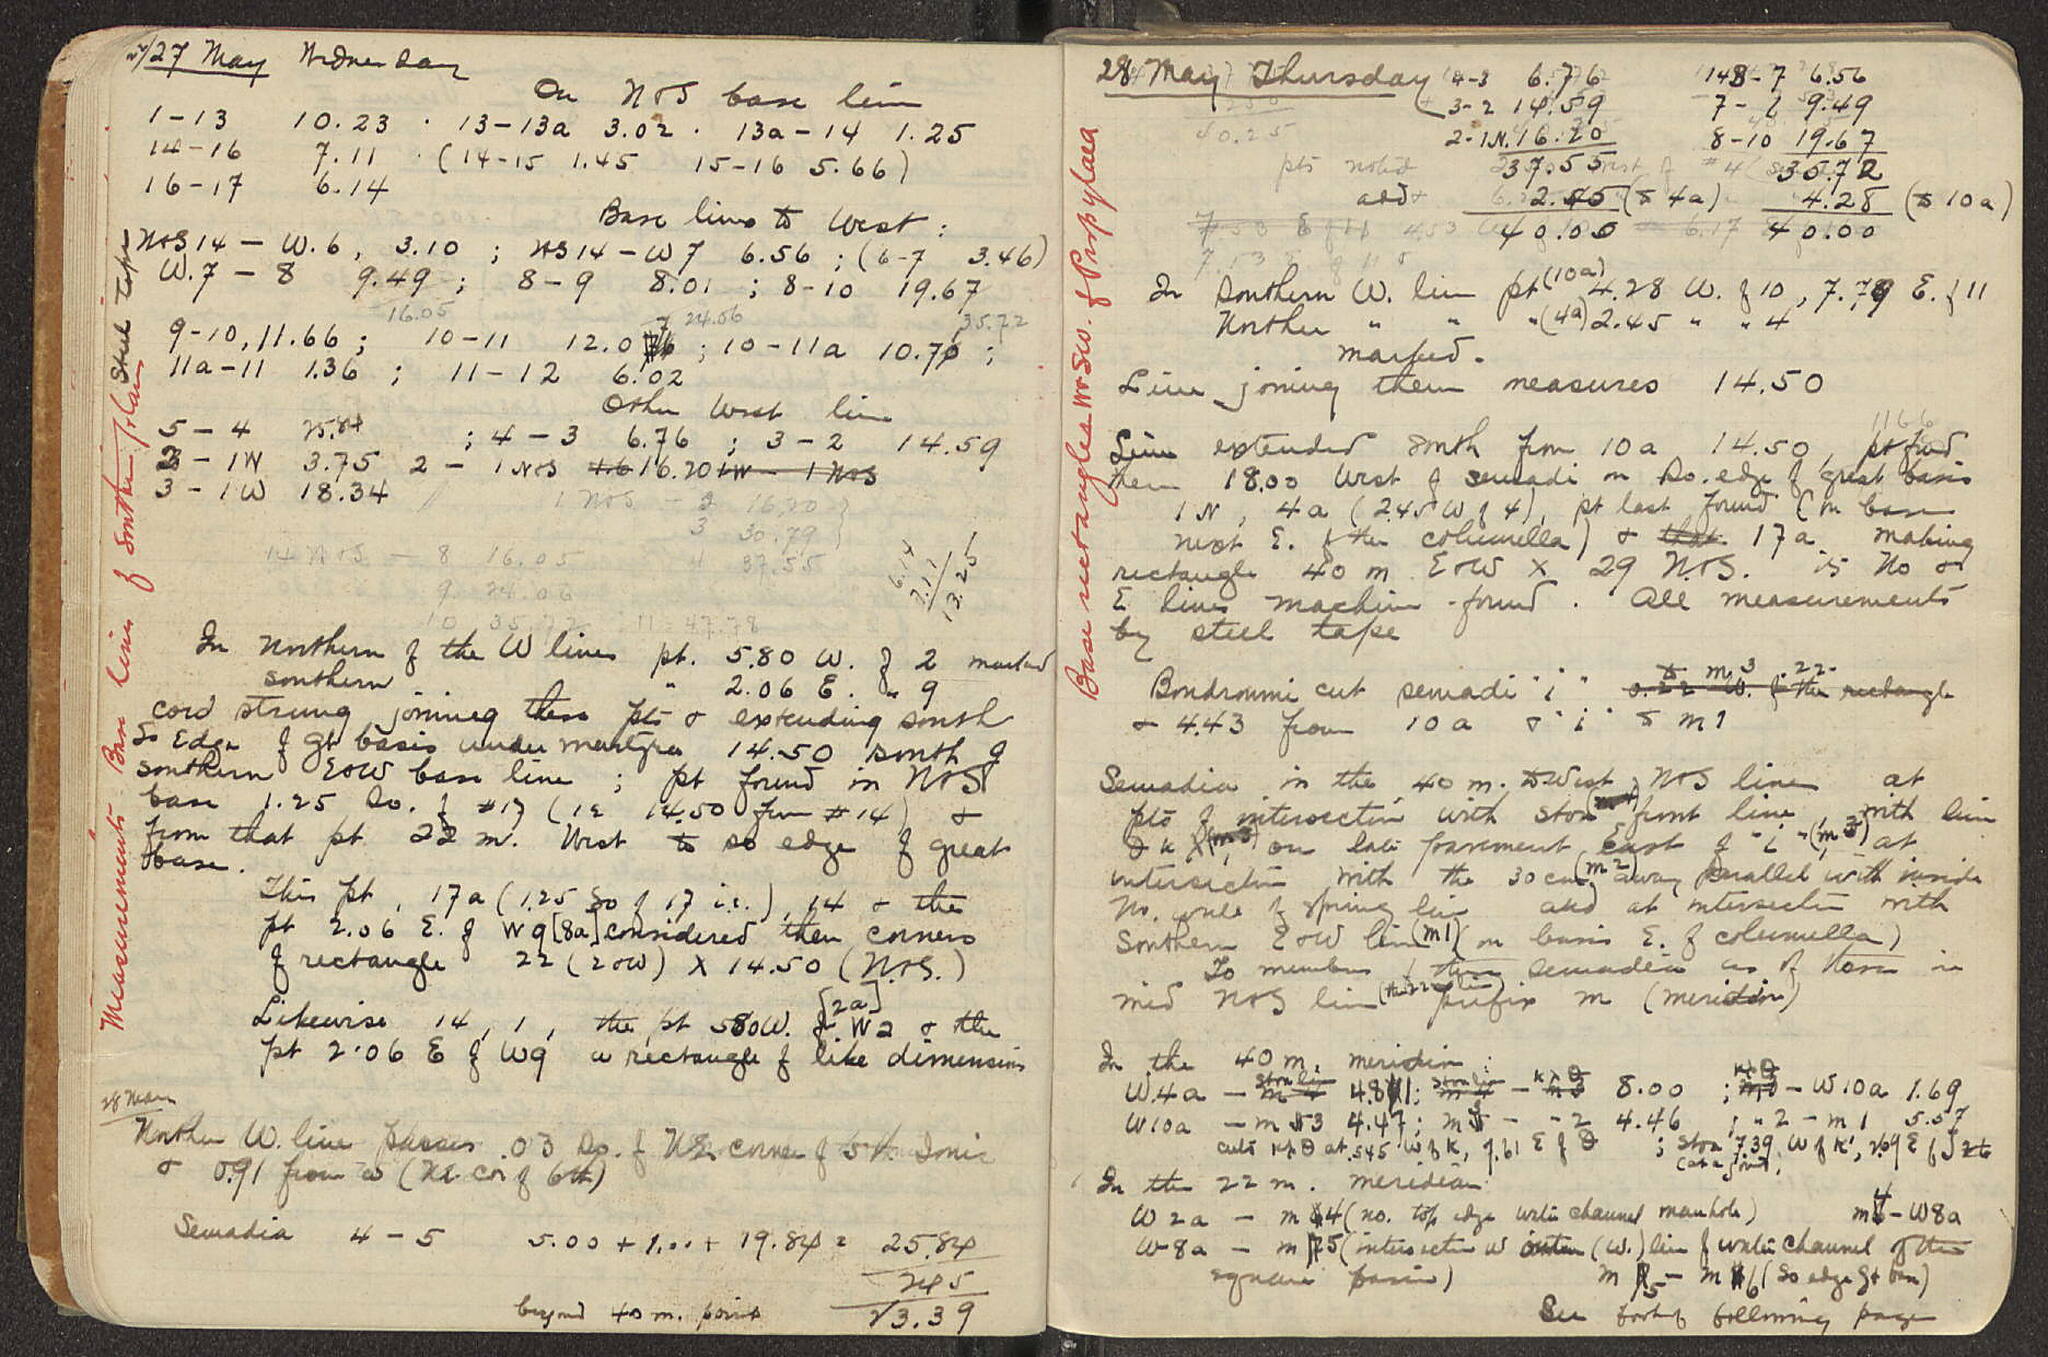 27 May Wednesday
On N+S base line
1-13 10.23 · 13-13a 3.02 · 13a-14 1.25
14-16 7.11 · (14-15 1.45 15-16 5.66)
16-17 6.14
Base line to West :
N+S 14 - W.6, 3.10 ; N+S 14 - W7 6.56 ; (6-7 3.46)
W.7 - 8 9.49 ; 8-9 8.01 ; 8-10 19.67
16.05 24.06 35.72
9-10, 11.66 ; 10-11 12.06 ; 10-11a 10.70 ;
11a-11 1.36 ; 11-12 6.02
Other West line
5-4 25.84 ; 4-3 6.76 ; 3-2 14.59
2-1W 3.75 2 - 1 N+S 16.20 1W - 1 N+S
3-1W 18.34
1 N+S - 2 16.20
3 30.79
14 N+S - 8 16.05 4 37.55
9 24.06
10 35.72 11 47.78
6.14
7.11
13.25
In Northern of the W lines pt. 5.80 W. of 2 marked
Southern " 2.06 E. " 9
cord strung joining these pts + extending south
to edge of gt basis under 14.50 south of
southern E+W base line ; pt found in N+S
base 1.25 So. of #17 (ie 14.50 from #14) +
from that pt 22 m. West to so edge of great
base.
This pt, 17a (1.25 So of 17 i.e.), 14 + the
pt 2.06 E. of W9 [8a] considered then corners
of rectangle 22 (E+W) X 14.50 (N+S.)
[2a]
Likewise 14, 1, the pt 580W. of W2 + the
pt 2.06 E of W9 a rectangle of like dimensions
28 May
Norther W. line passes .03 So. of NE corner of 5th Ionic
+ 0.91 from (NE cor of 6th)
Semadia 4-5 5.00 + 1.00 + 19.84 = 25.84
2.45
beyond 40 m. point 23.39
Measurements Base lines of Southern plans Steel tape
28 May Thursday 4-3 6.76 14-7 6.56
3-2 14.59 7-8 9.49
2-1N. 16.20 8-10 19.67
pts noted 37.55 35.72
add 2.45 (to 4a) 4.28 (to 10a)
40.00 40.00
In Southern W. line pt (10a) 4.28 W. of 10, 7.79 E. of 11
Norther " " " (4a) 2.45 " " 4
marked.
Line joining them measures 14.50
1166
Line extended South from 10a 14.50, pt fixed
there 18.00 West of semadi on So. edge of great basis
1 N, 4a (2.45 W of 4), pt last found (on base
next E. of the columella) + that 17a making
rectangle 40 m E+W X 29 N+S. is No +
E lines machine-found. All measurements
by steel tape
Bondroumi cut semadi "i" 0.22 W. of the rectangle
to m 3 .22
+ 4.43 from 10a + "i" to m1
Semadia in the 40 m. to West N+S line at
pts of intersection with stoa front line, with line
K (m3) on late pavement East of "i" (m3) at
intersection with the 30 cm (m2) away parallel with inside
No. wall of spring line and at intersection with
Southern E+W line (m1) (on basis E. of columella)
To numbers of these semadia as of those in
mid N+S line prefix m (meridin)
In the 40 m. meridin :
W.4a - stoa line 4.81; stoa line - 8.00 ; - W10a 1.69
W10a - m 3 4.47 ; m - - 2 4.46 ; " 2 - m 1 5.57
cuts at .545 W of K, 9.61 E of ; stoa 7.39 W of K', 2.69 E of
(at a joint)
In the 22 m. meridian
W 2a - m 4 (no. top edge water channel manhole) m 4 - W8a
W 8a - m 5 (intersection w outer (W.) line of water channel of the
square basin) m 5 - m 6 (So edge gt bas)
See foot of following page
Base rectangles W + SW. of Propylaea